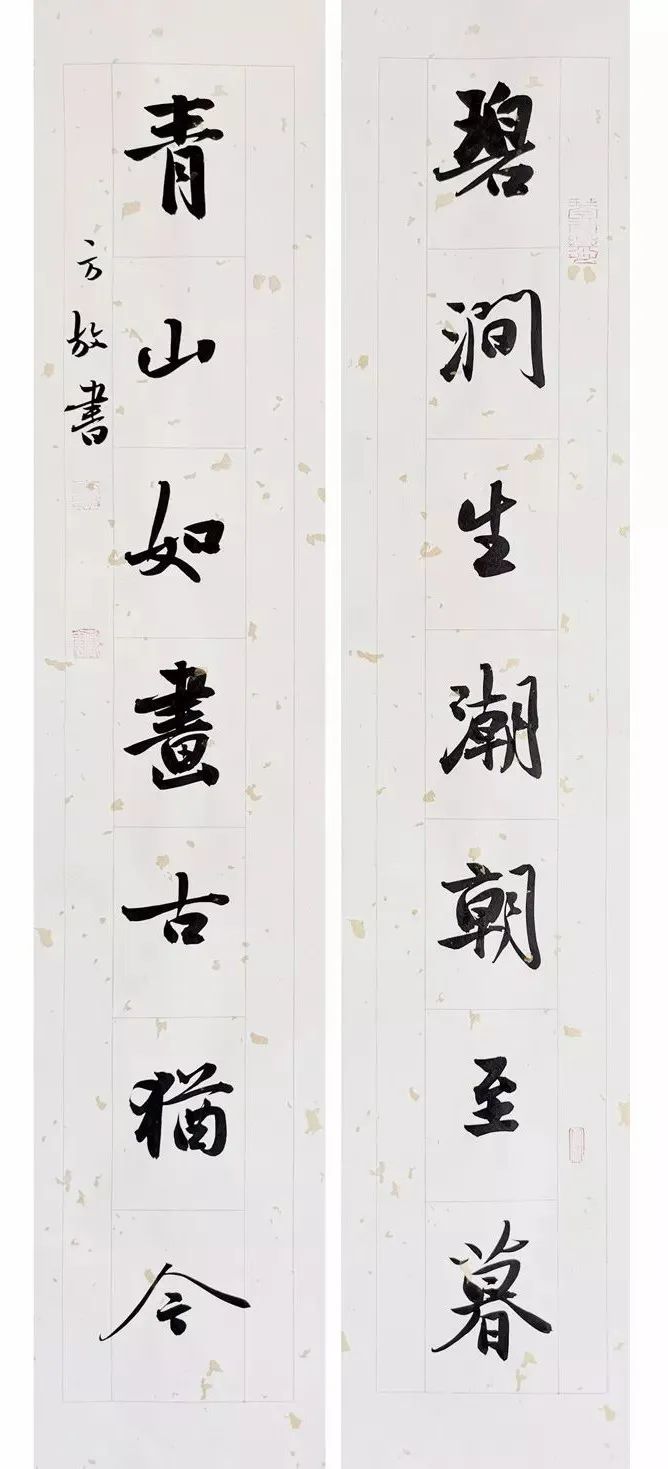 碧澗生潮朝至暮
青山如畫古猶今
方放書